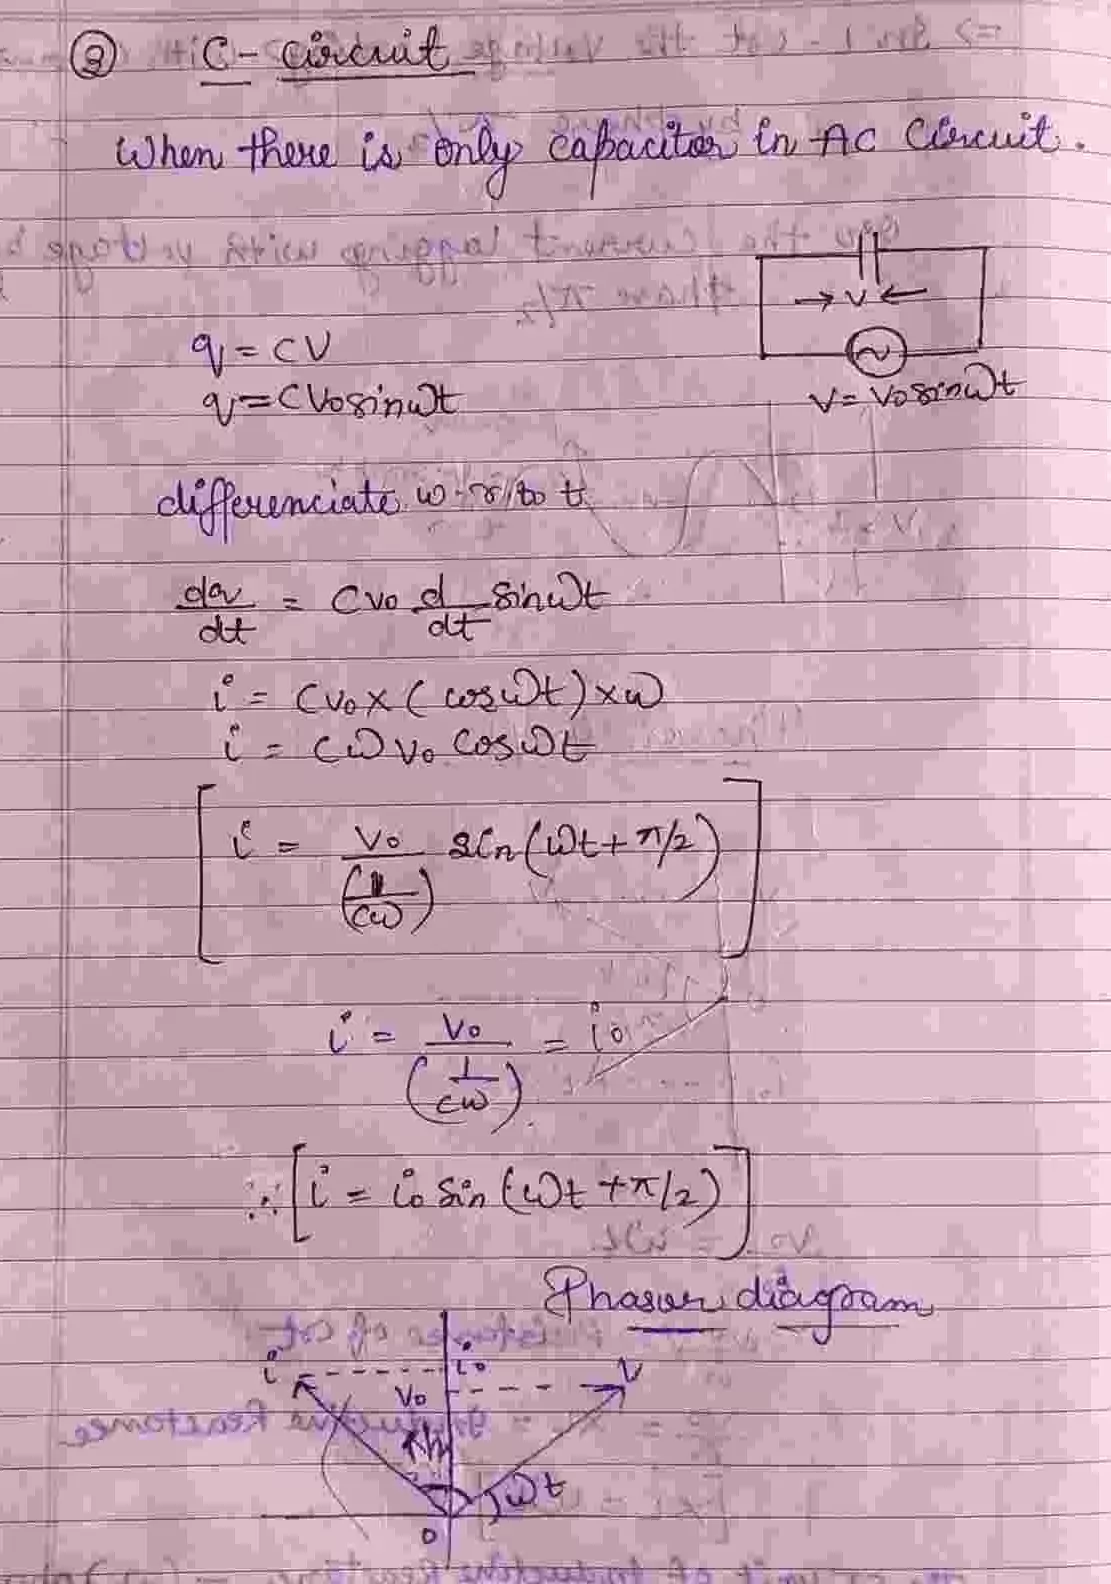 ③ C - circuit
When there is only capacitor in AC Circuit.
→ V ←
V = V₀ sinωt
q = CV
q = CV₀sinωt
differenciate w.r to t
dq/dt = CV₀ d/dt sinωt
i = CV₀ × (cosωt) × ω
i = CωV₀ cosωt
[ i = V₀/(1/Cω) sin(ωt + π/2) ]
i = V₀/(1/Cω) = i₀
∴ [ i = i₀ sin (ωt + π/2) ]
Phasor diagram
i i₀ V
V₀
ωt
O